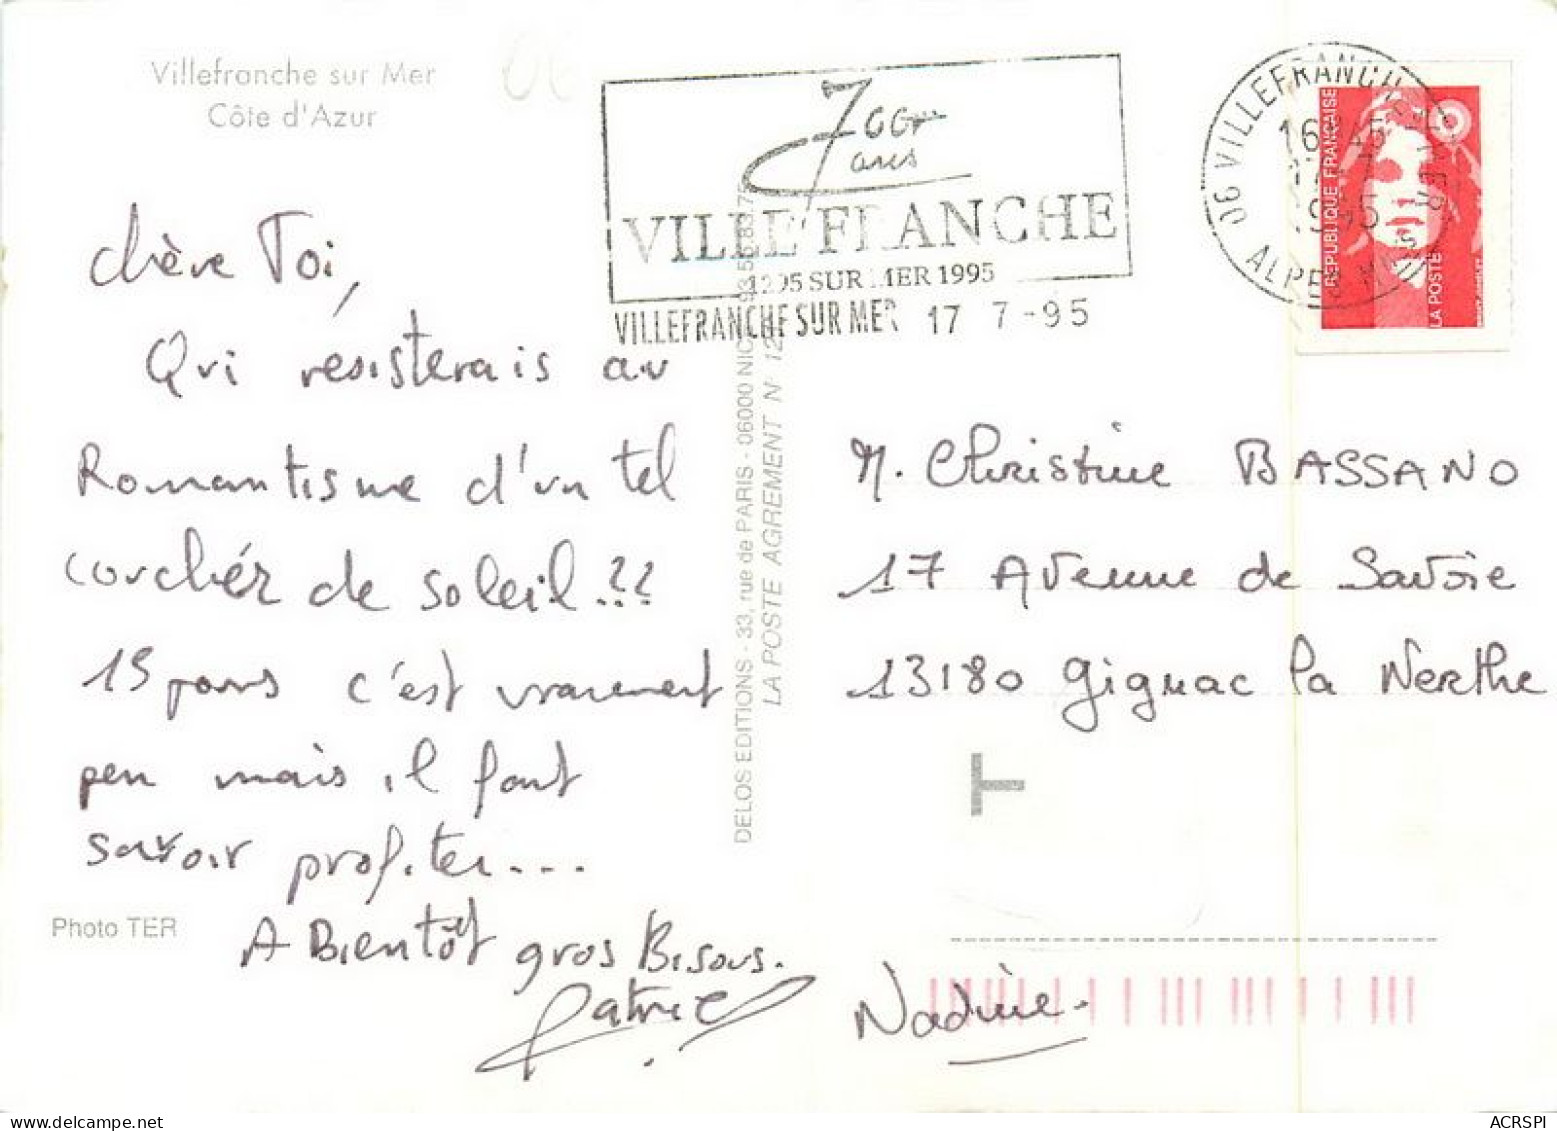 Villefranche sur Mer
Côte d'Azur
700
ans
VILLEFRANCHE
1295 SUR MER 1995
VILLEFRANCHE SUR MER 17 7-95
06 VILLEFRANCHE S/MER
16H45
17 7
1995
ALPES MMES
REPUBLIQUE FRANÇAISE
LA POSTE
chère Toi,
Qui résisterais au
Romantisme d'un tel
couchér de soleil.??
15 jours c'est vraiement
peu mais il faut
savoir profiter...
A Bientôt gros Bisous.
Patrice
Nadine.
Photo TER
DELOS EDITIONS - 33, rue de PARIS - 06000 NIC
LA POSTE AGREMENT N° 12
M. Christine BASSANO
17 Avenue de Savoie
13180 Gignac la Nerthe
T
ACRSPI